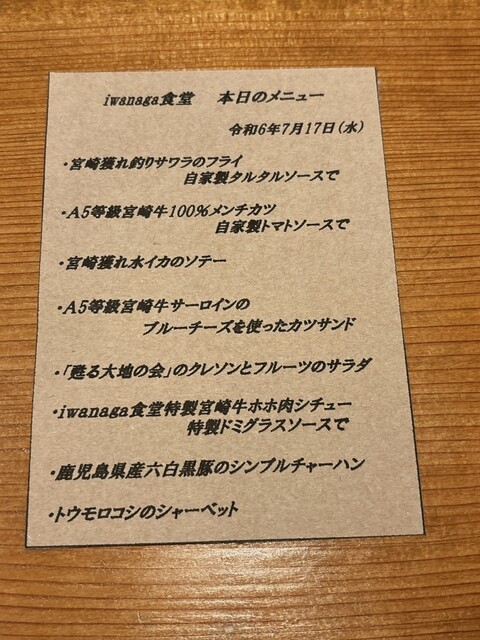 iwanaga食堂 本日のメニュー
令和6年7月17日(水)
・宮崎獲れ釣りサワラのフライ
自家製タルタルソースで
・A5等級宮崎牛100%メンチカツ
自家製トマトソースで
・宮崎獲れ水イカのソテー
・A5等級宮崎牛サーロインの
ブルーチーズを使ったカツサンド
・「甦る大地の会」のクレソンとフルーツのサラダ
・iwanaga食堂特製宮崎牛ホホ肉シチュー
特製ドミグラスソースで
・鹿児島県産六白黒豚のシンプルチャーハン
・トウモロコシのシャーベット